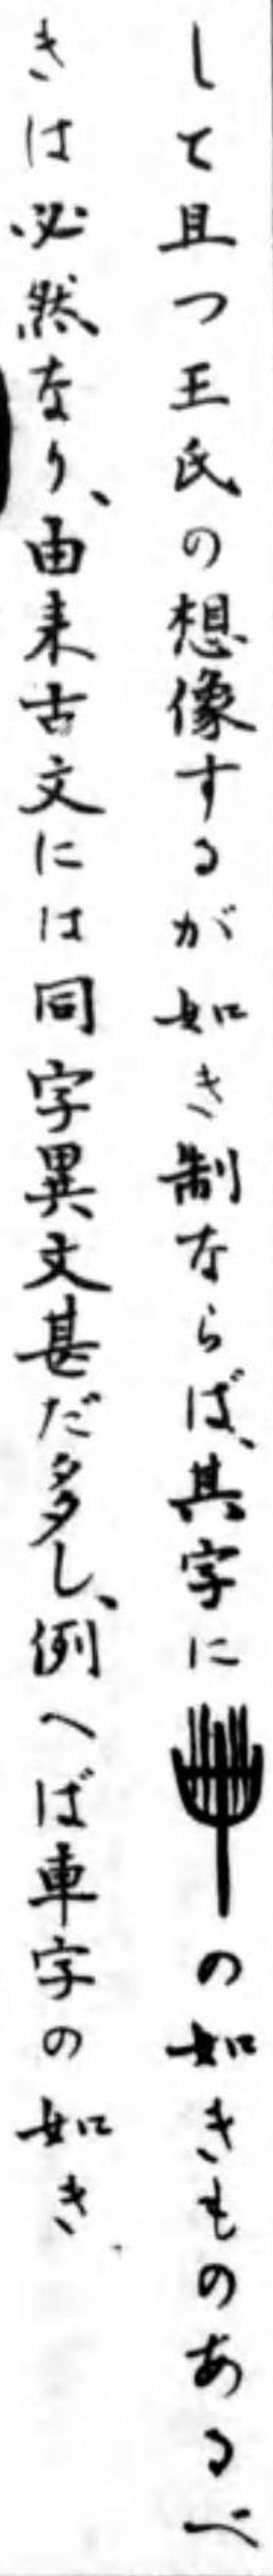 して且つ王氏の想像するが如き制ならば、其字にの如きものあるべ
きは必然なり、由来古文には同字異文甚だ多し、例へば車字の如き、